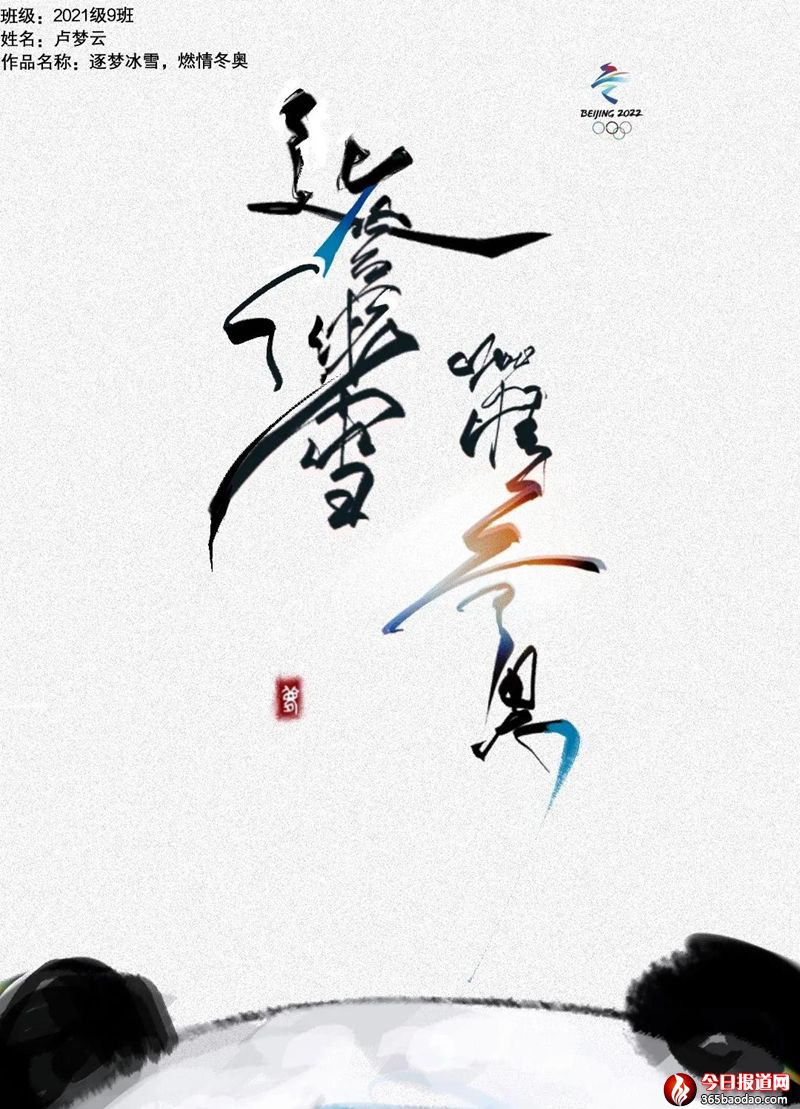 班级：2021级9班
姓名：卢梦云
作品名称：逐梦冰雪，燃情冬奥
BEIJING 2022
雪
冬奥
今日报道网
365baodao.com